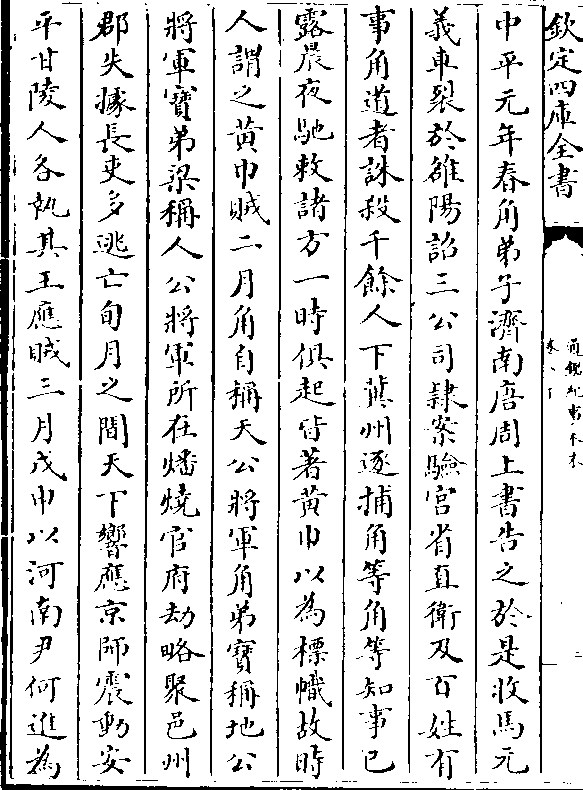 欽定四庫全書
通鑑紀事本末
卷八下
二
中平元年春角弟子濟南唐周上書告之於是收馬元
義車裂於雒陽詔三公司隸案驗宮省直衛及百姓有
事角道者誅殺千餘人下冀州逐捕角等角等知事已
露晨夜馳敕諸方一時俱起皆著黃巾以為標幟故時
人謂之黃巾賊二月角自稱天公將軍角弟寶稱地公
將軍寶弟梁稱人公將軍所在燔燒官府劫略聚邑州
郡失據長吏多逃亡旬月之間天下響應京師震動安
平甘陵人各執其王應賊三月戊申以河南尹何進為